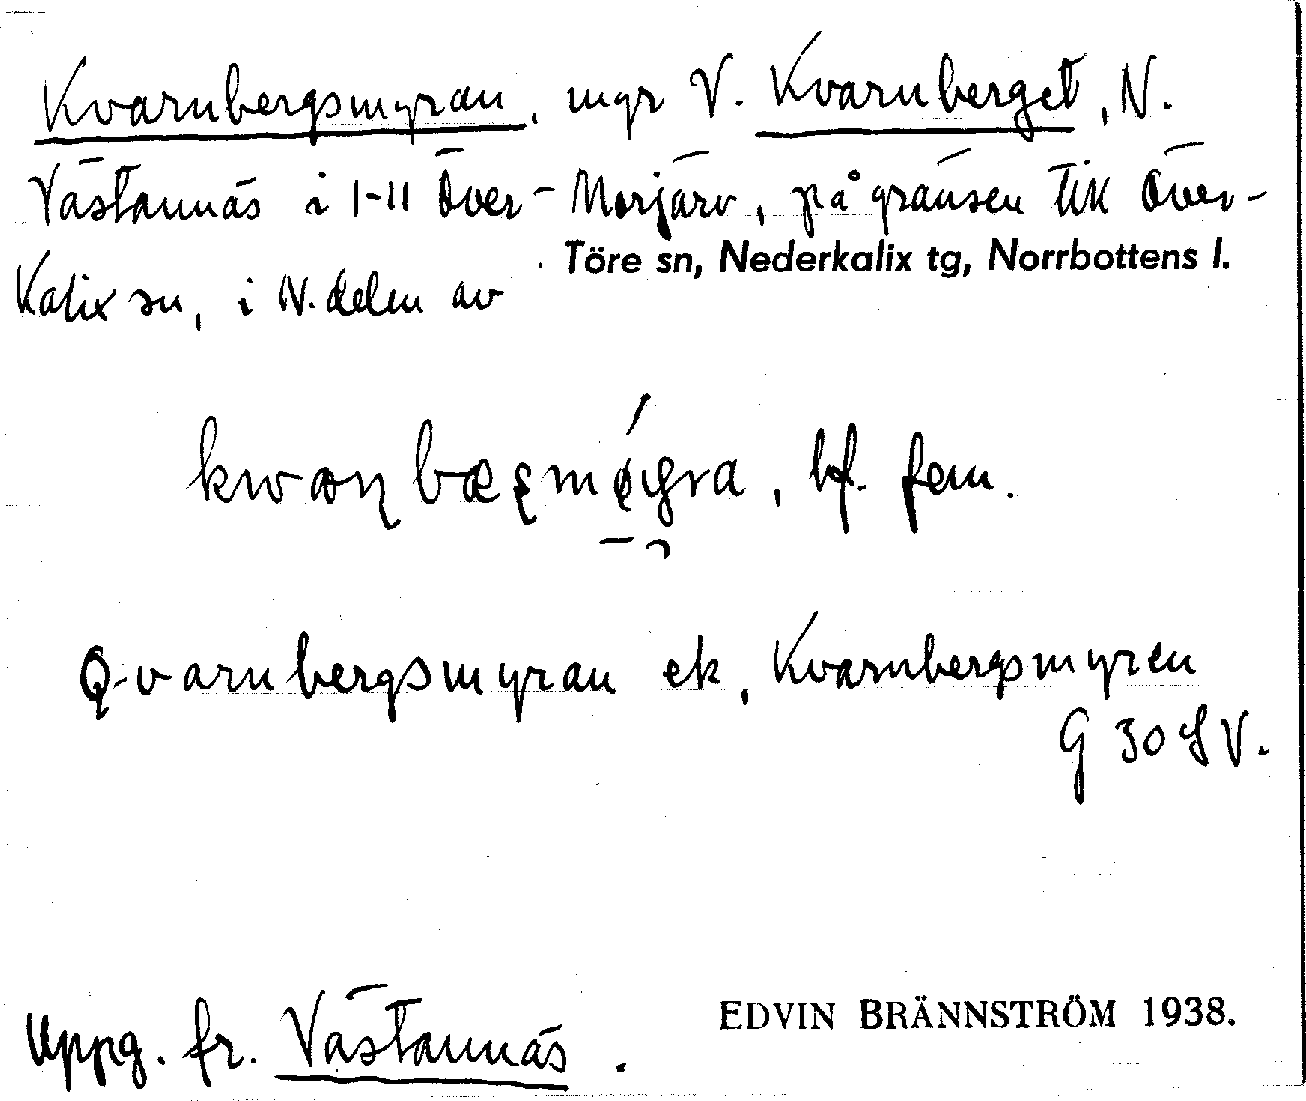 Kvarnbergsmyran, myr V. Kvarnberget, N.
Västannäs i 1-11 Över-Morjärv, på gränsen till Över-
Töre sn, Nederkalix tg, Norrbottens l.
Kalix sn, i N. delen av
bf. fem.
Qvarnbergsmyran ek, Kvarnbergsmyren
G 30 SV.
Uppg. fr. Västannäs.
EDVIN BRÄNNSTRÖM 1938.